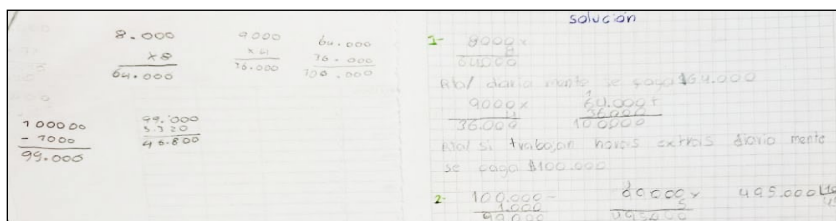 8.000
x8
64.000
9000
x4
36.000
64.000
36.000
100.000
100000
- 1000
99.000
99.000
5.320
46.800
solución
1- 8000x
8
64000
Rta/ diaria mente se paga $64.000
9000x
4
36.000
64.000+
36000
100000
Rta/ si trabajan horas extras diaria mente
se paga $100.000
2- 100.000-
1.000
99000
99000x
5
495000
495.000